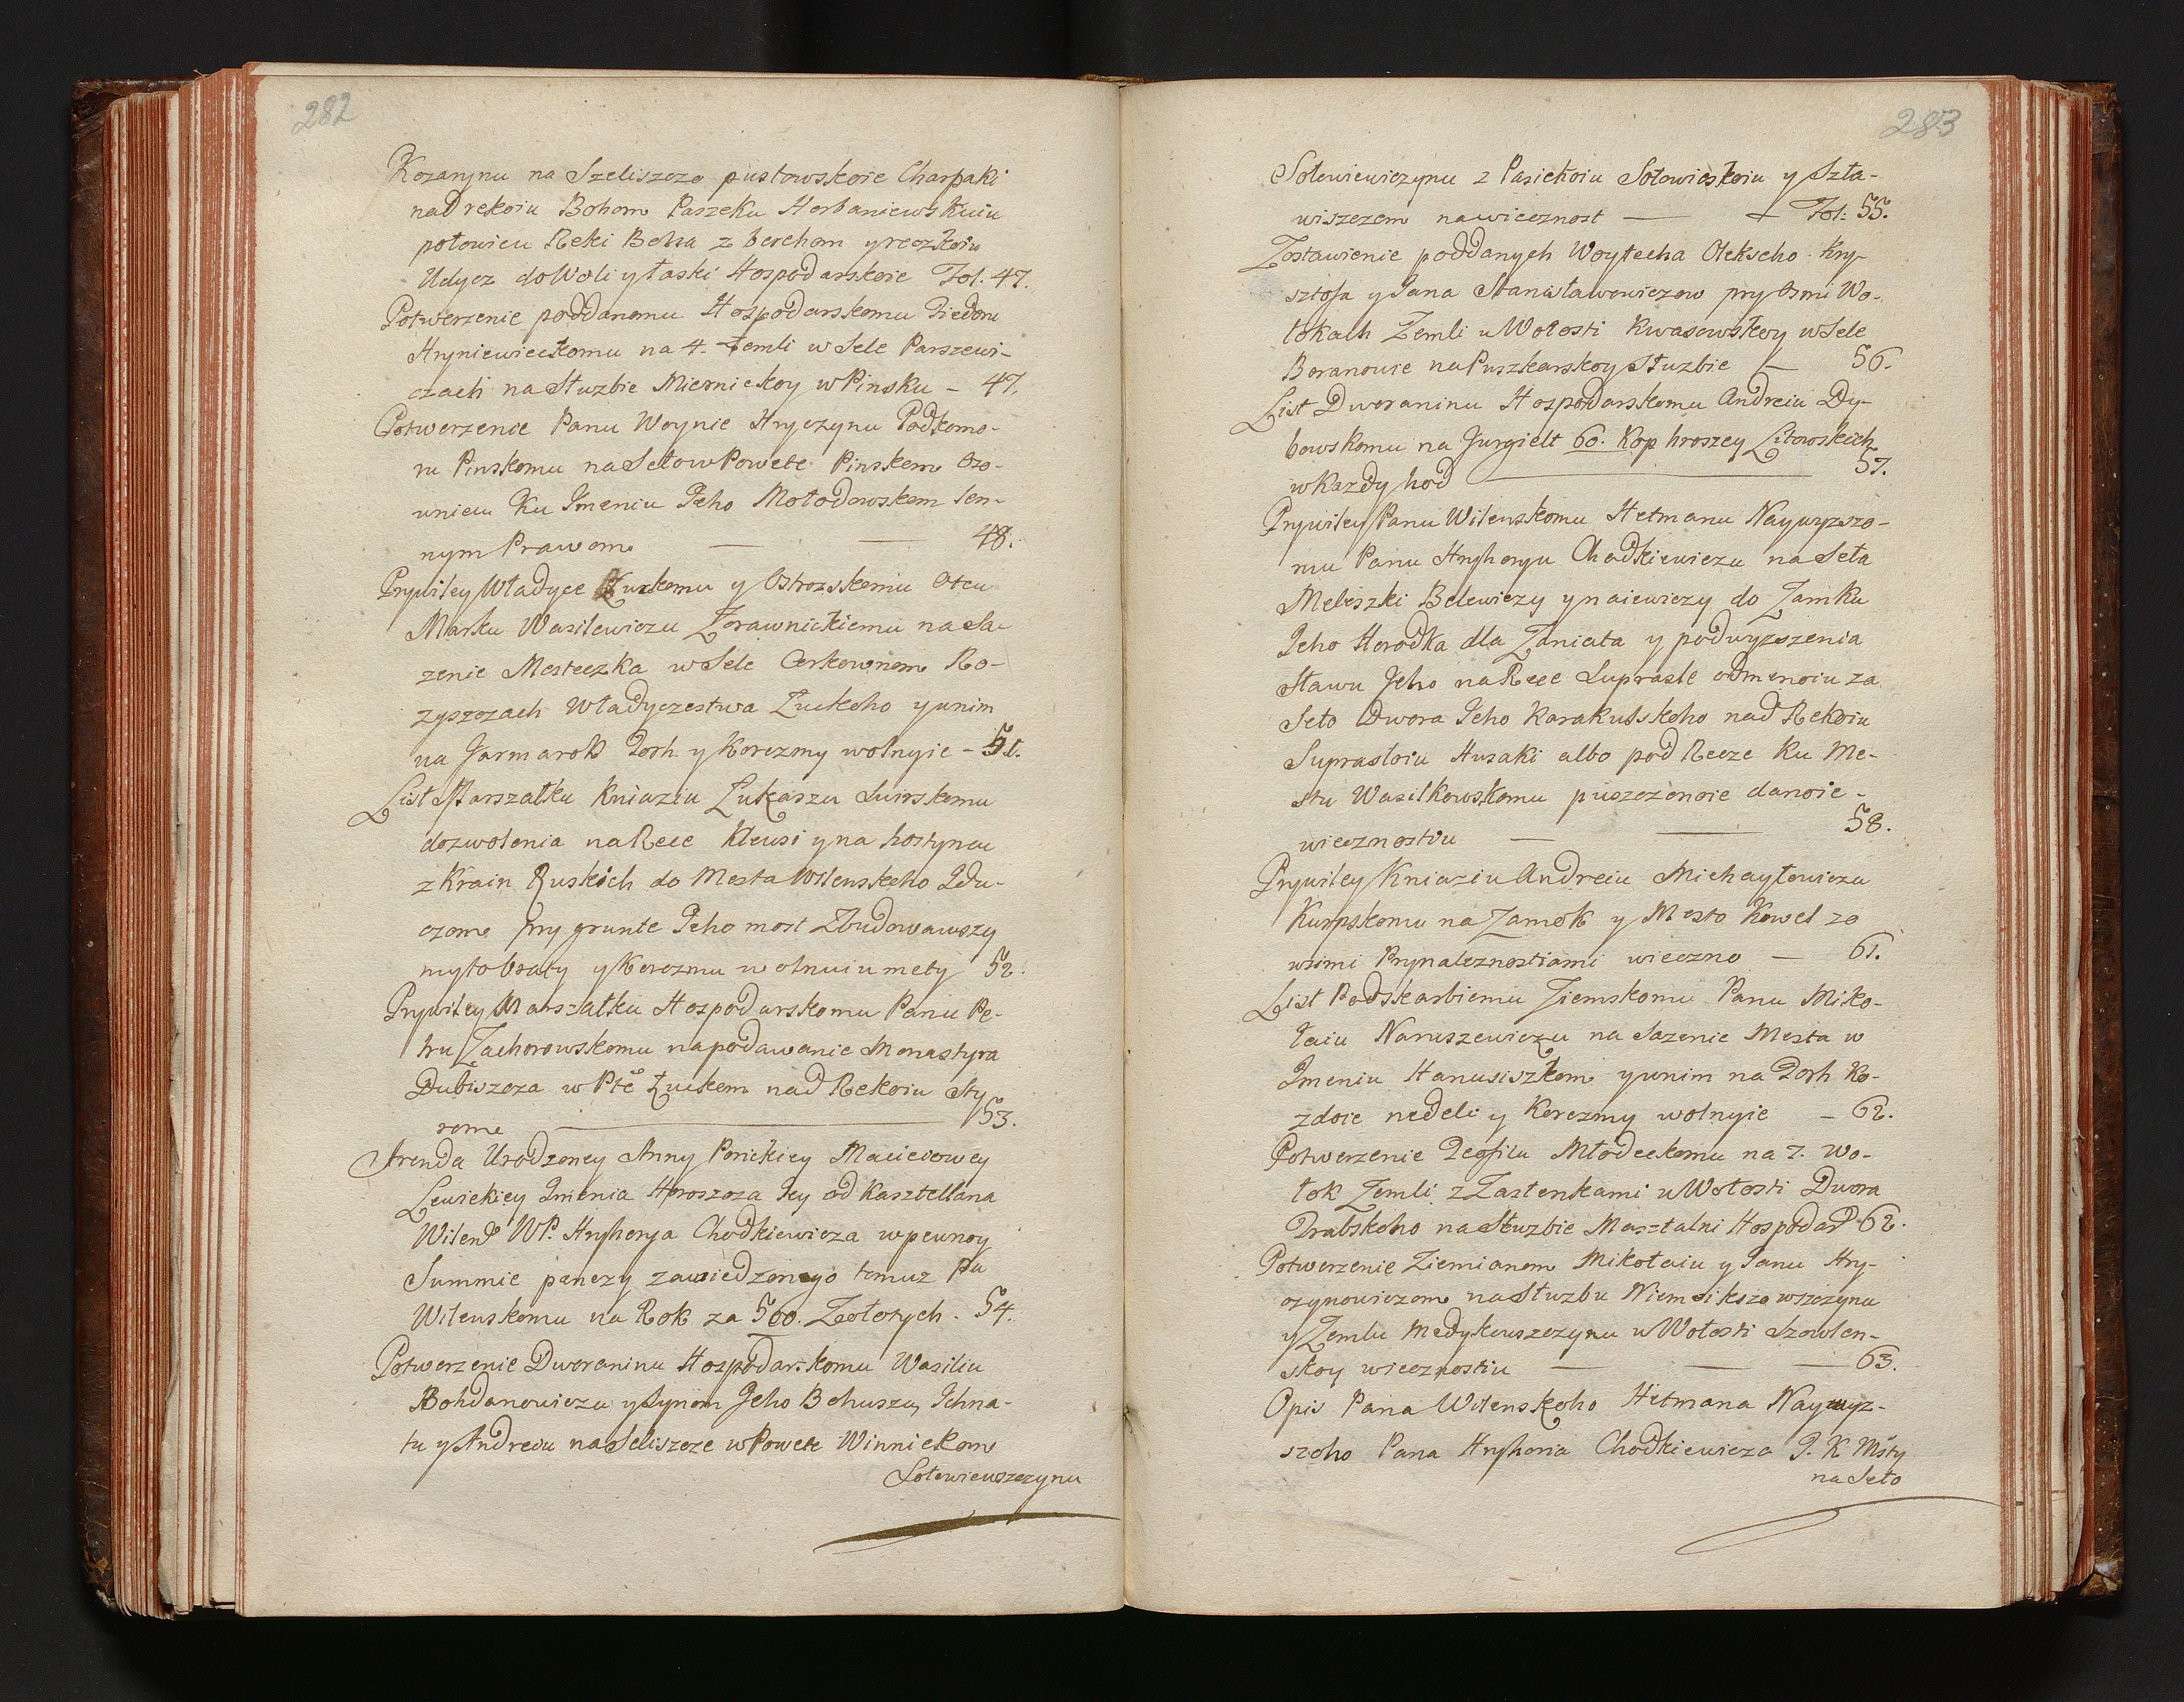 282
Kozarynu na Szeliszczo pustowskoie Charpaki
nad rekoiu Bohom Paszeku Horbaniewskuiu
połowicu Reki Boha z berehom y reczkoiu
Udycz do Woli y łaski Hospodarskoie Fol. 47.
Potwerzenie poddanomu Hospodarskomu Fiedoru
Hryniewieckomu na 4. Zemli w Sele Parszewi-
czach na Służbie Miernickoy w Pinsku - 47.
Potwerzenie Panu Woynie Hryczynu Podkomo-
ru Pinskomu na Seło w Powete Pinskom Ozo-
unicu Ku Imeniu Jeho Mołodowskom len-
nym Prawom — — 48.
Prywiley Władyce Łuckomu y Ostrozskomu Otcu
Marku Wasilewiczu Zorawnickiemu na Sa-
zenie Mesteczka w Sele Cerkownom Ro-
zyszczach Władyczestwa Łuckoho y u nim
na Jarmarok Torh y Korczmy wolnyie - 51.
List Marszałku Kniaziu Łukaszu Swirskomu
dozwolenia na Rece Kleusi y na hostyncu
z Krain Ruskich do Mesta Wilenskoho Idu-
czom pry grunte Jeho most Zbudowawszy
myto braty y Korczmu wolnuiu mety 52.
Prywiley Marszałku Hospodarskomu Panu Pe-
tru Zachorowskomu na podawanie Monastyra
Dubiszcza w Pte Łuckom nad Rekoiu Sty
rome — 53.
Arenda Urodzoney Anny Porickiey Maciejowey
Lewickiey Imenia Horoszcza Jey od Kasztellana
Wilens WP. Hryhorya Chodkiewicza w pewnoy
Summie penezy zawiedzonego tomuz Pu
Wilenskomu na Rok za 500. Zołotych - 54.
Potwerzenie Dworaninu Hospodarskomu Wasiliu
Bohdanowiczu y Synom Jeho Bohuszu, Ichna-
tu y Andreiu na Seliszcze w Powete Winnickom
Sołowiewszczynu
283
Sołowiewiczynu z Pasiekoiu Sołowieskoiu y Szta-
wiszczem na wiecznost — — Fol: 55.
Zostawienie poddanych Woytecha Olekseho Kry-
sztofa y Jana Stanisławowiczow pry Osmi Wo-
łokach Zemli u Wołosti Kwasowskoy w Sele
Boranowie na Puszkarskoy Służbie — 56.
List Dworaninu Hospodarskomu Andreiu Dy-
bowskomu na Jurgielt 60. Kop hroszey Litowskich
w Kazdy hod — 57.
Prywiley Panu Wilenskomu Hetmanu Naywyzszo-
mu Panu Hryhoryu Chodkiewiczu na Seła
Meleszki Belewiczy y naiewiczy do Zamku
Jeho Horodka dla Zaniata y podwyzszenia
Stawu Jeho na Rece Suprasle odmenoiu za
Seło Dwora Jeho Karakulskoho nad Rekoiu
Suprasloiu Husaki albo pod Recze Ku Me-
stu Wasilkowskomu puszczonoie danoie -
wiecznostiu — — 58.
Prywiley Kniaziu Andreiu Michayłowiczu
Kurpskomu na Zamok y Mesto Kowel zo
wsimi Prynaleznostiami wieczno — 61.
List Podskarbiemu Ziemskomu Panu Miko-
łaiu Naruszewiczu na Sazenie Mesta w
Imeniu Hanusiszkom y u nim na Torh Ko-
zdoie nedeli y Korczmy wolnyie - 62.
Potwerzenie Teofilu Młodeckomu na 7. Wo-
łok Zemli z Zastenkami u Wołosti Dwora
Trabskoho na Służbie Masztalni Hospodar 62.
Potwerzenie Ziemianom Mikołaiu y Janu Hry-
czynowiczom na Służbu Niemsikszowszczynu
y Zemlu Medykowszczynu u Wołosti Szowlen-
skoy wiecznostiu — — — 63.
Opis Pana Wilenskoho Hetmana Naywyz-
szoho Pana Hryhoria Chodkiewicza J. K Msty
na Seło